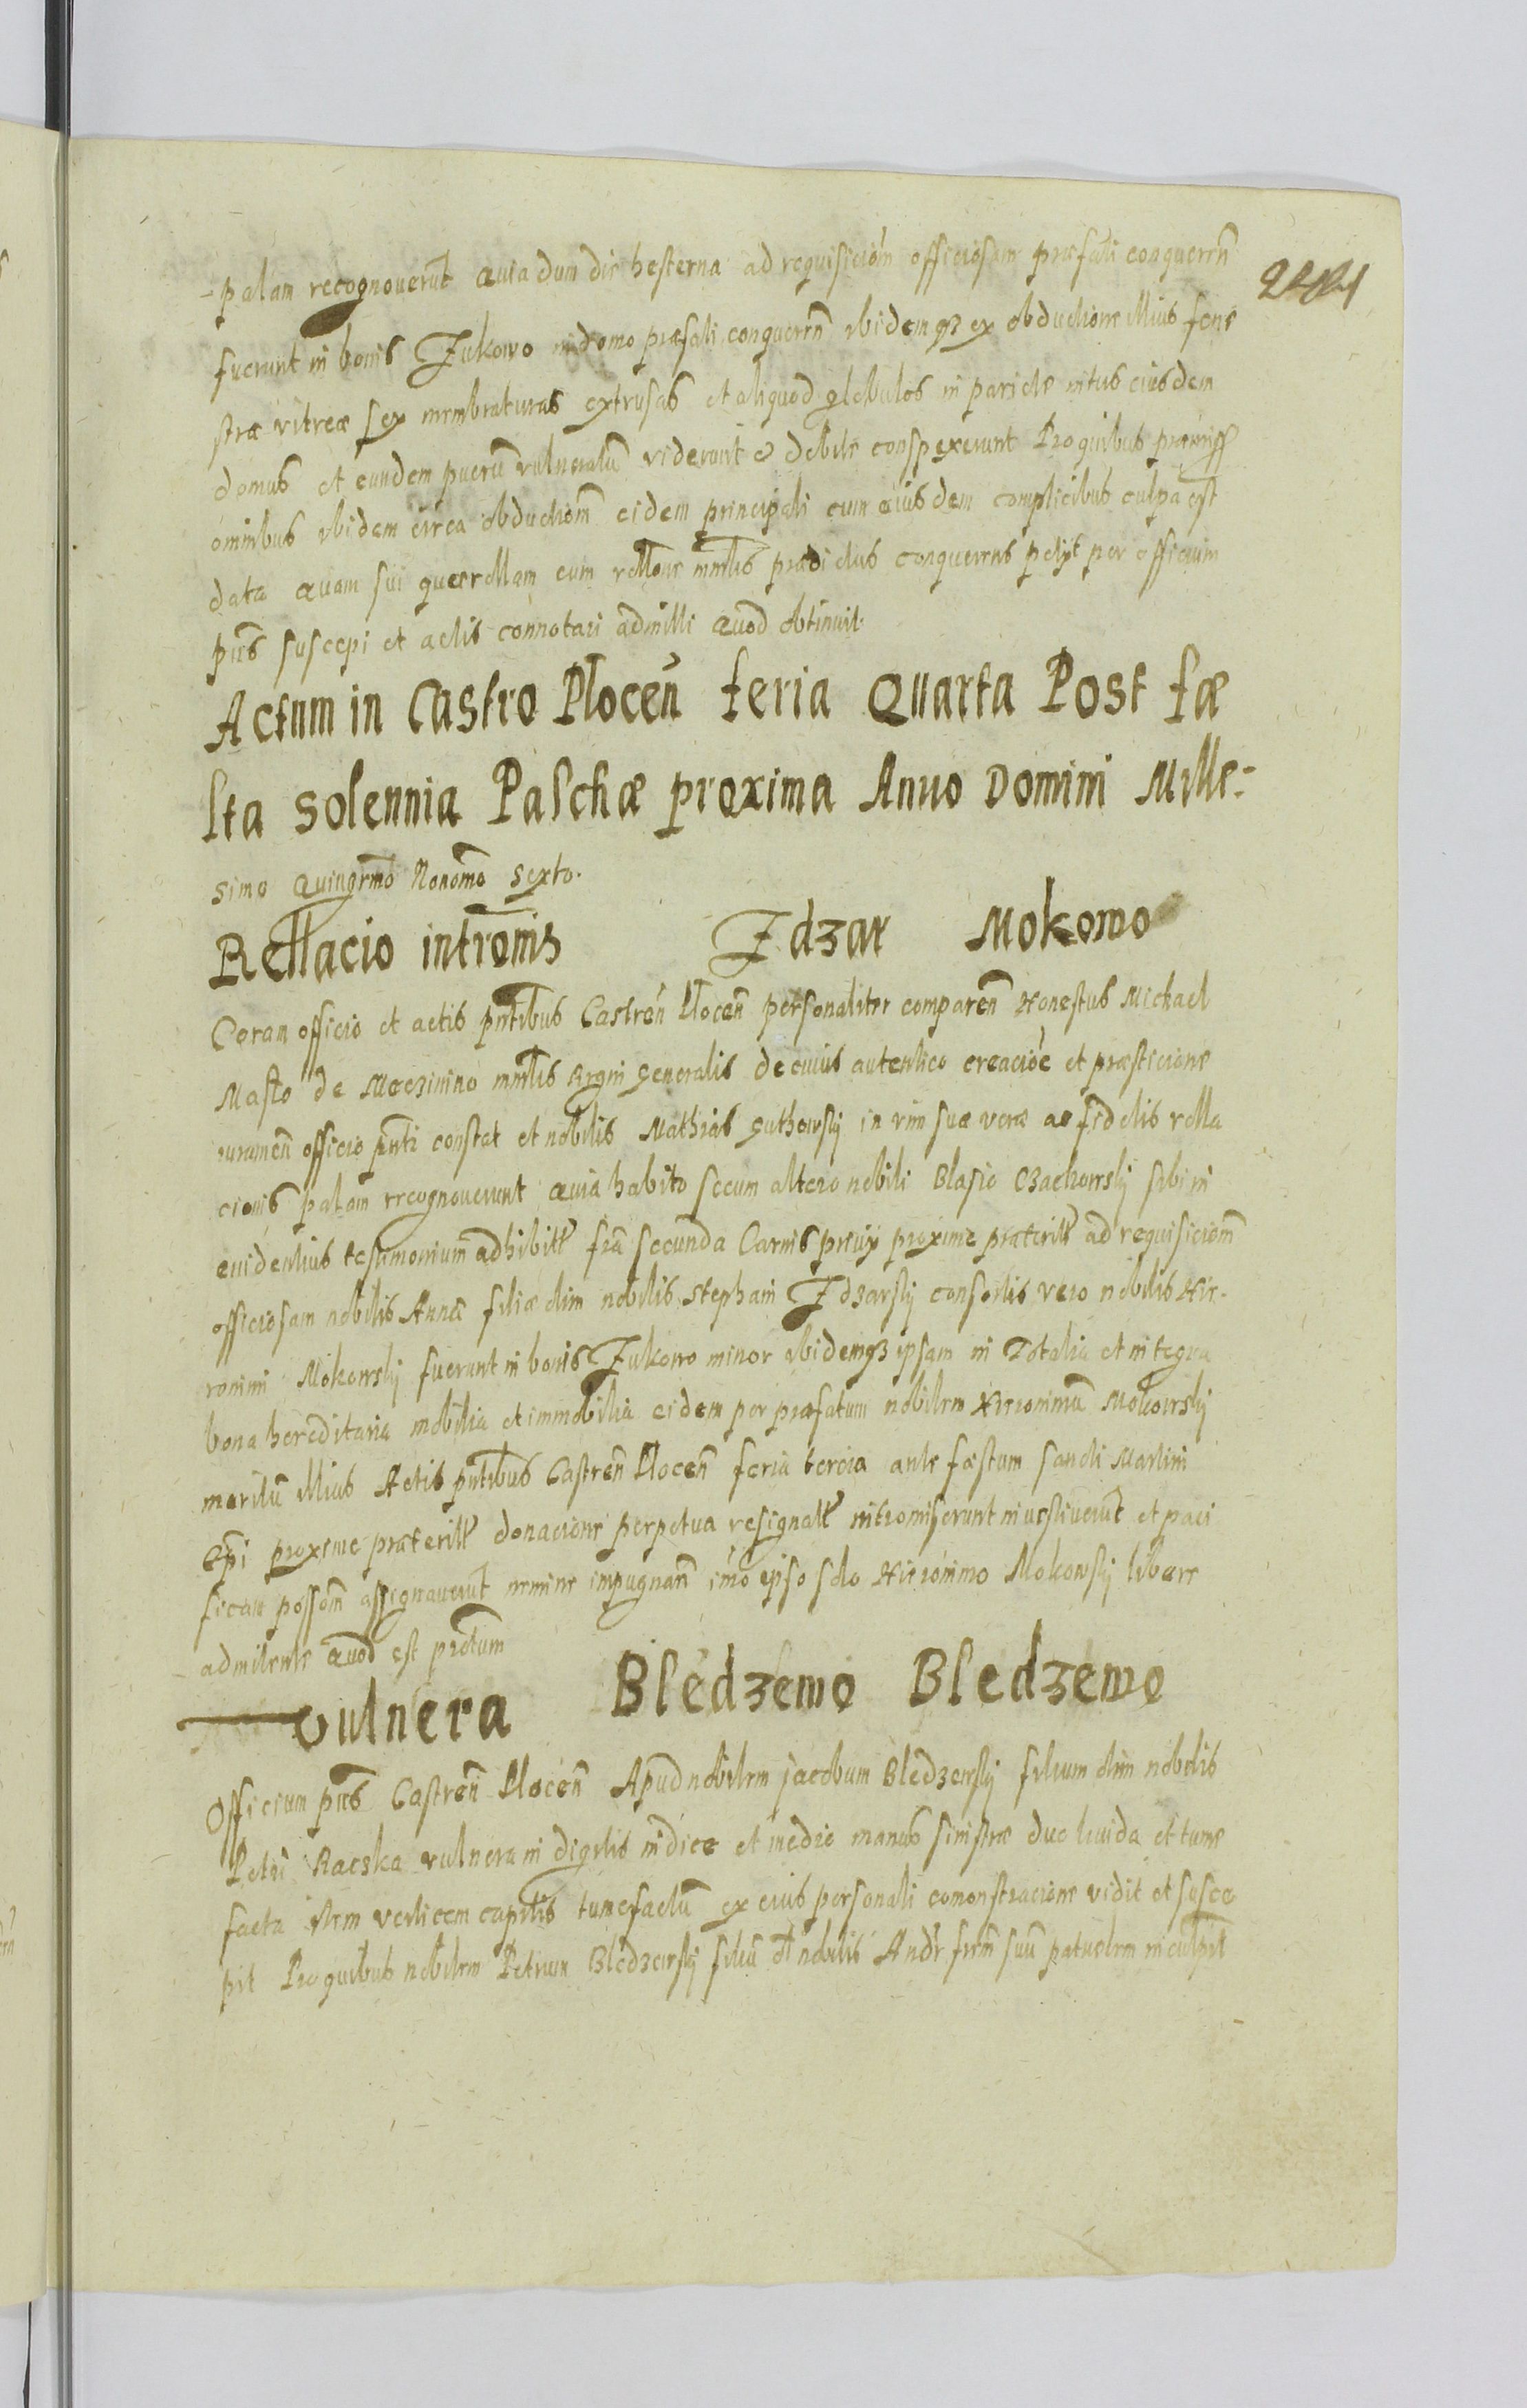 palam recognoverūt quia dum die hesterna ad requisicióm officiosam præfati conqueren̄
fuerunt in bonis Zukowo in domo præfati conqueren̄ ibidemqʒ ex obductione illius fene
stræ vitreæ sex membraturas extrusas et aliquod globulos in pariete intus eiusdem
domus et eundem puerū vulneratū viderunt et debite conspexerunt Pro quibus præmiss
omnibus ibidem circa obductiom̄ eidem principali cum eiusdem complicibus culpa est
data quam sui querellam cum rellōne mnr̄lis prædictus conquerens petÿt per officium
pn̄s suscepi et actis connotari admitti quod obtinuit.
Actum in Castro Plocen̄ feria Quarta Post fæ
sta solennia Paschæ proxima Anno Domini Mille-
simo Quingmō Nonomō sexto.
Rellacio introm̄is Idzar Mokowo
Coram officio et actis pn̄tibus Castren̄ Plocen̄ personaliter comparen̄ Honestus Michael
Masło de mnr̄lis Regni generalis de cuius autentico creacióe et præsticione
iuramen̄ officio pn̄ti constat et nobilis Mathias Guthowskÿ in vim suæ veræ ac fidelis rella
cionis palam recognoverunt quia habito secum altero nobili Blasio Czachowskÿ sibi in
evidentius testimonium adhibitt fr̄a secunda Carnis privÿ proxime præteritt ad requisiciom̄
officiosam nobilis Annæ filiæ olim nobilis Stephani Idzarskÿ consortis vero nobilis Hie-
ronimi Mokowskÿ fuerunt in bonis Zukowo minor ibidemqʒ ipsam in Totalia et integra
bona hereditaria mobilia et immobilia eidem per præfatum nobilem Hieronimū Mokowskÿ
maritū illius Actis pn̄tibus Castren̄ Plocen̄ feria tercia ante fæstum sancti Martini
Ep̄i proxime præteritt donacione perpetua resignatt intromiserunt investiverūt et paci
ficam possom̄ assignaverūt nemine impugnan̄ imō ipso Hieronimo Mokowskÿ libere
admitente quod est
Vulnera Bledzewo Bledzewo
Officium pn̄s Castren̄ Plocen̄ Apud nobilem Jacobum Bledzewskÿ filium olim nobilis
Petri Raczka vulnera in digitis indice et medio manus sinistræ duo livida et tume
facta item verticem capitis tumefactū ex eius personali comonstracione vidit et susce
pit Pro quibus nobilem Petrum Bledzewskÿ filiū ol̄ nobilis Andr̄ frēm suū patruelem inculpit